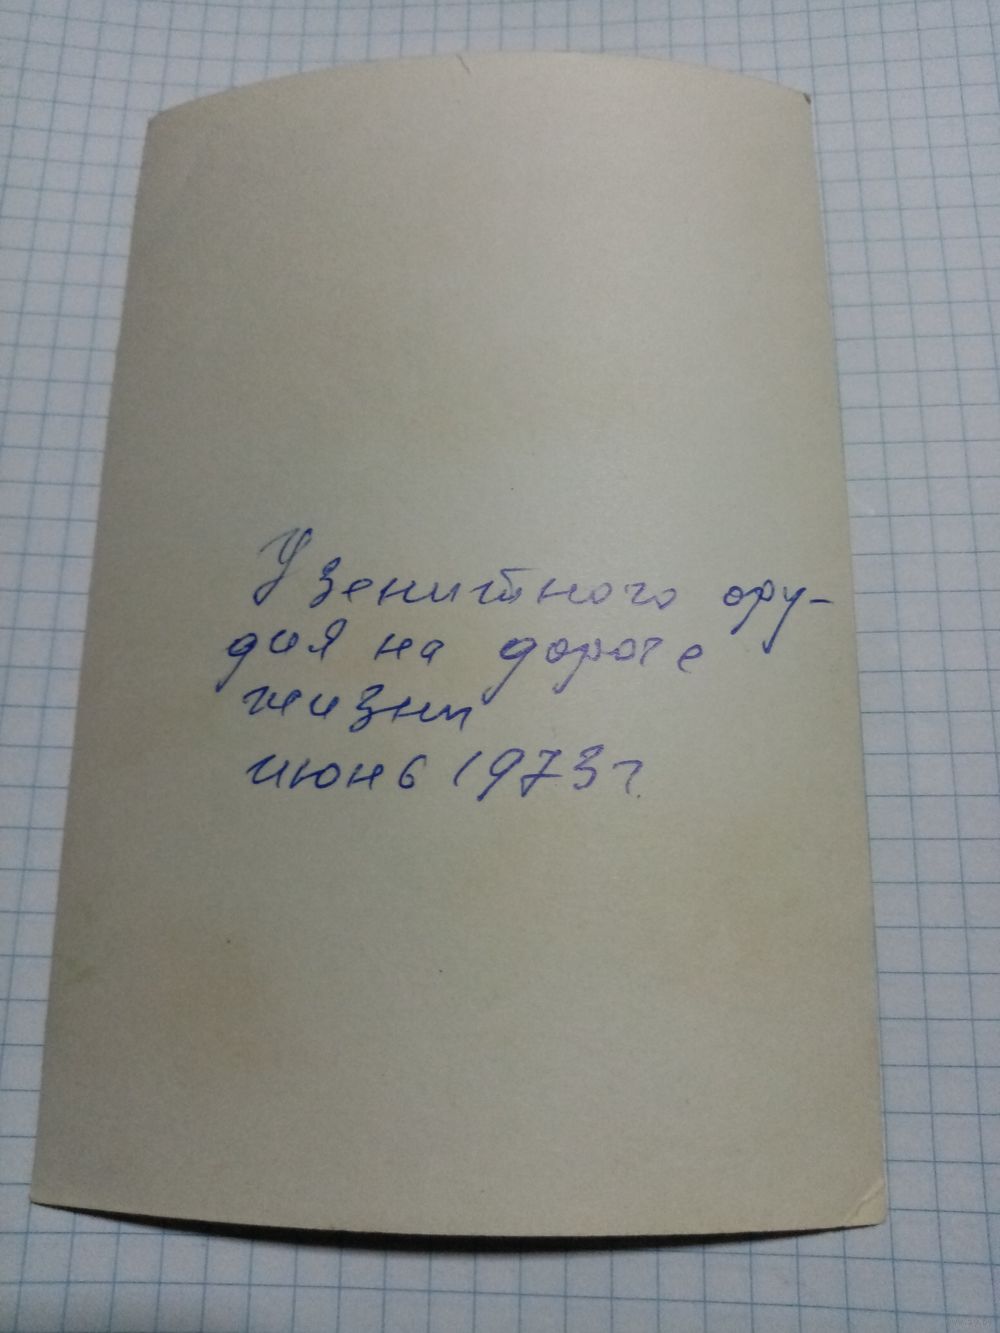 У зенитного ору-
дия на дороге
жизни
июнь 1973г.